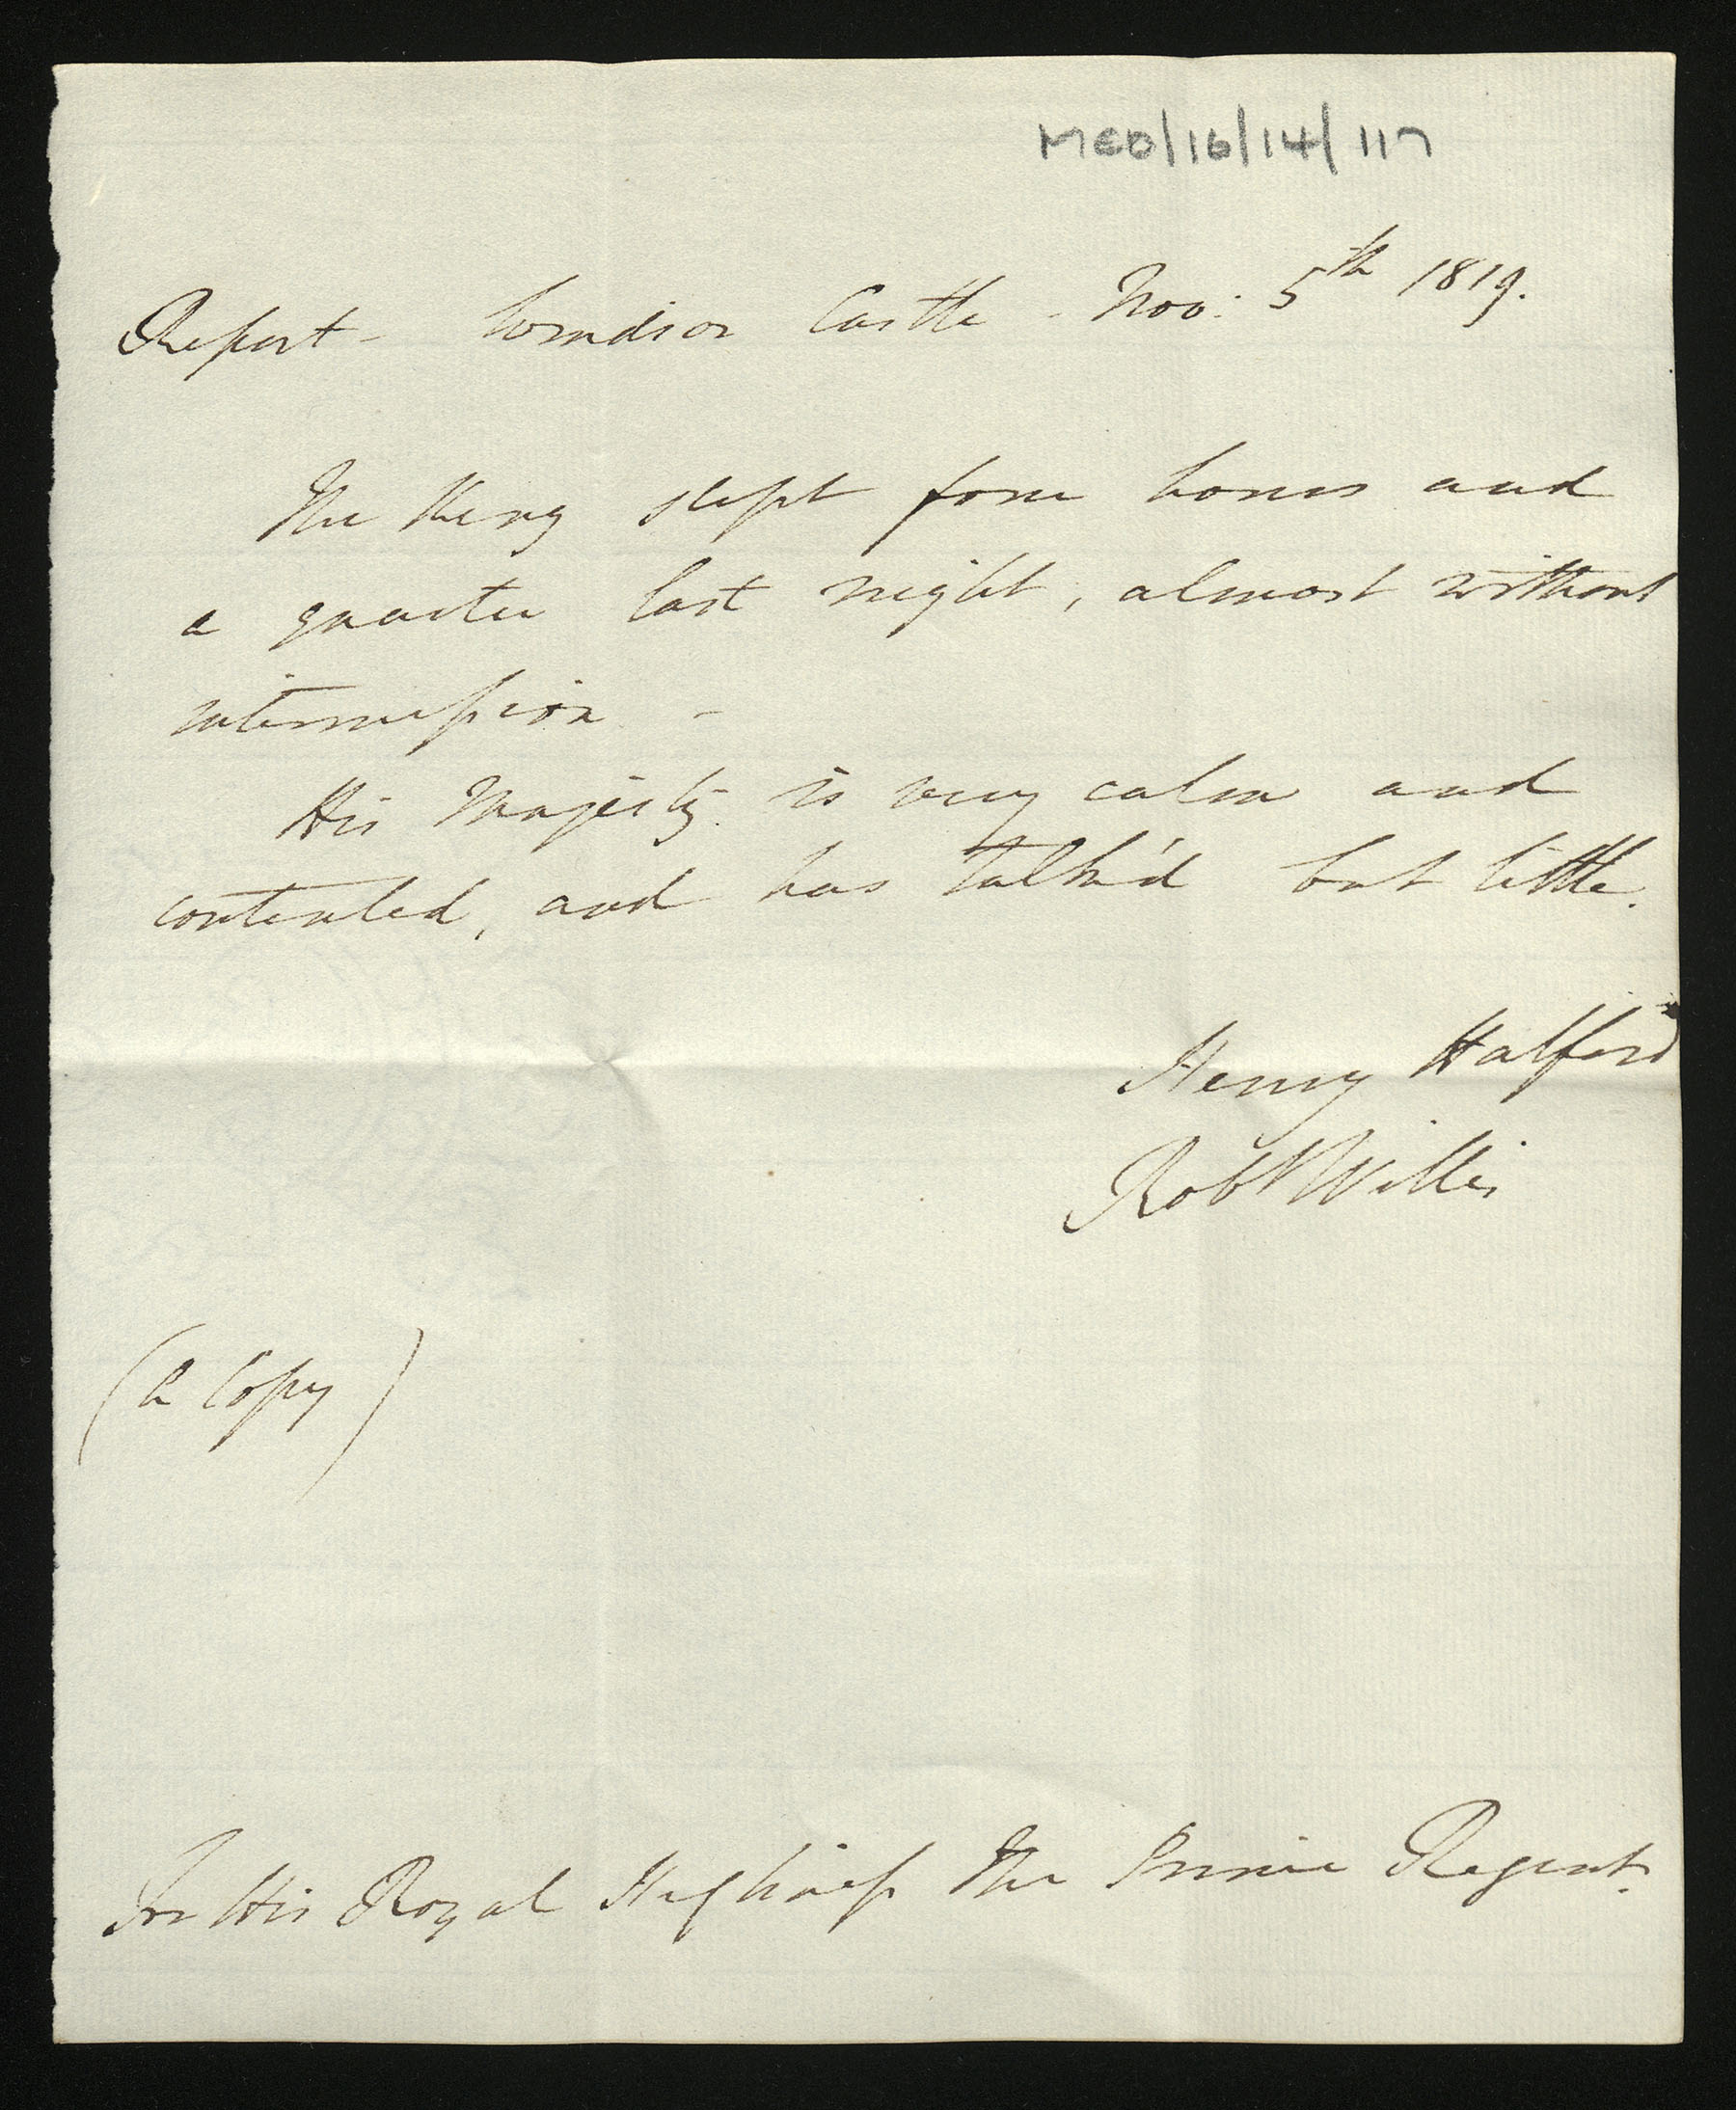 MED/16/14/117
Report - Windsor Castle - Nov: 5th 1819.
The King slept four hours and
a quarter last night, almost without
intermission -
His Majesty is very calm and
contented, and has talk'd but little.
Henry Halford
Robt Willis
(A Copy)
For His Royal Highness The Prince Regent.